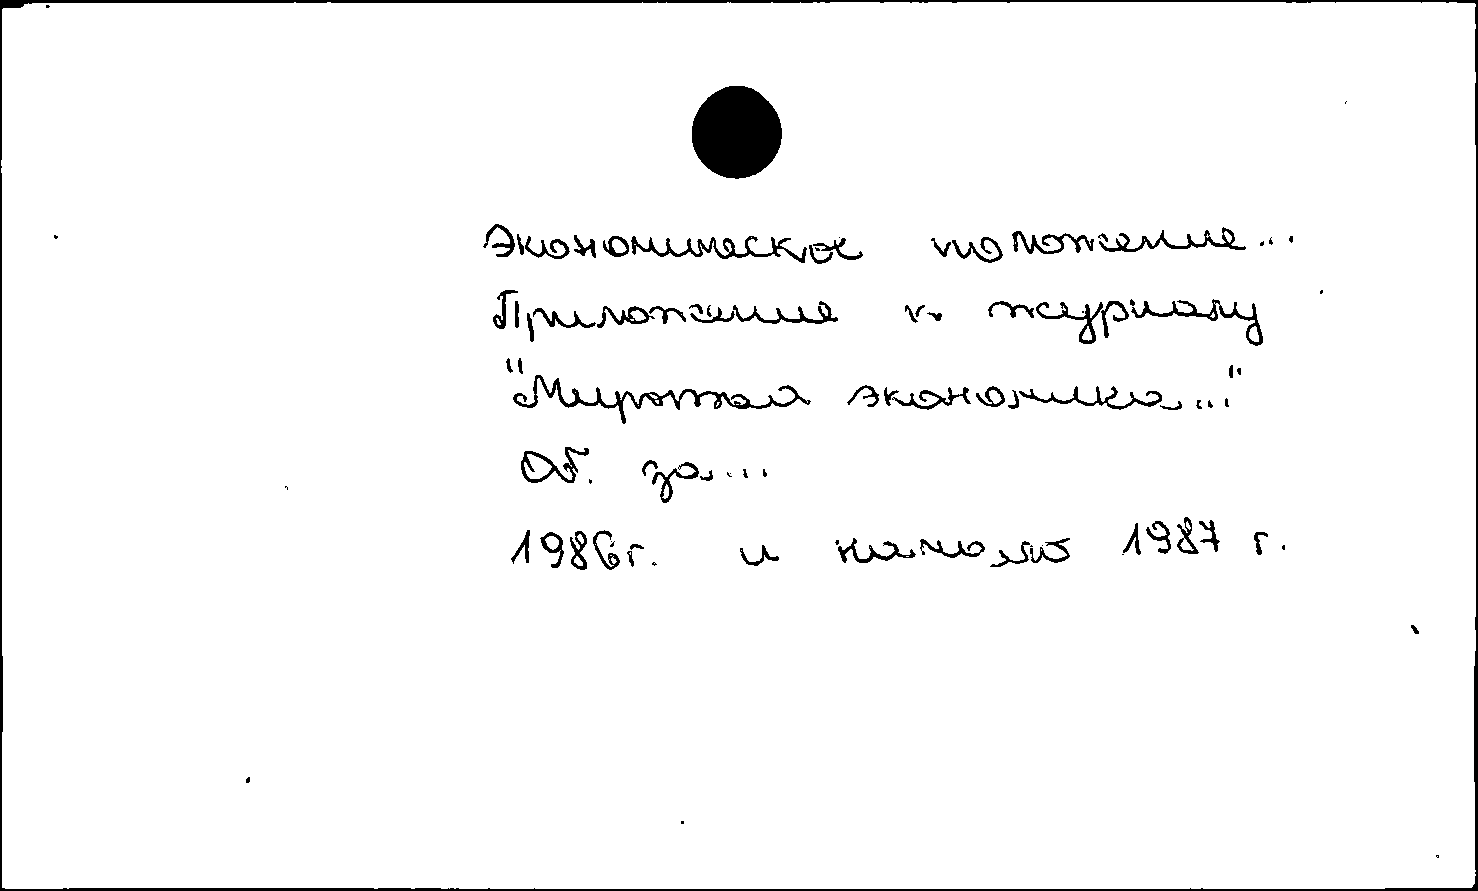 Экономическое положение...
Приложение к журналу
"Мировая экономика..."
Об. за...
1986 г. и начало 1987 г.